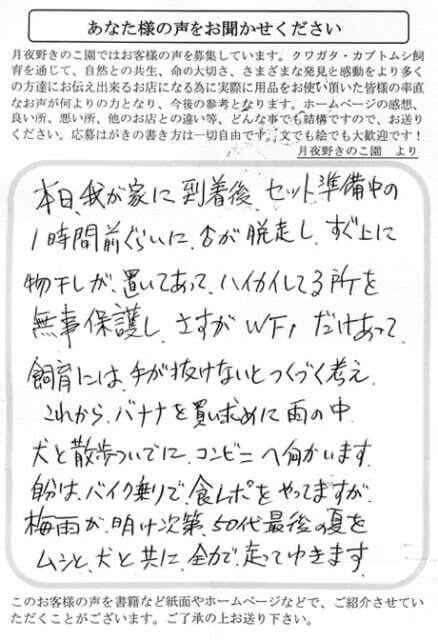 あなた様の声をお聞かせください
月夜野きのこ園ではお客様の声を募集しています。クワガタ・カブトムシ飼
育を通じて、自然との共生、命の大切さ、さまざまな発見と感動をより多く
の方達にお伝え出来るお店になる為に実際に用品をお使い頂いた皆様の率直
なお声が何よりの力となり、今後の参考となります。ホームページの感想、
良い所、悪い所、他のお店との違い等、どんな事でも結構ですので、お送り
ください。応募はがきの書き方は一切自由です。文でも絵でも大歓迎です!
月夜野きのこ園 より
本日、我が家に到着後、セット準備中の
1時間前ぐらいに、♂が脱走し、すぐ上に
物干しが、置いてあって、ハイカイしてる所を
無事保護し、さすがWF1だけあって、
飼育には、手が抜けないとつくづく考え、
これから、バナナを買い求めに雨の中
犬と散歩ついでに、コンビニへ向かいます。
自分は、バイク乗りで、食レポをやってますが
梅雨が、明け次第、50代最後の夏を
ムシと、犬と共に、全力で、走ってゆきます。
このお客様の声を書籍など紙面やホームページなどで、ご紹介させていた
だくことがございます。ご了承の上お送り下さい。